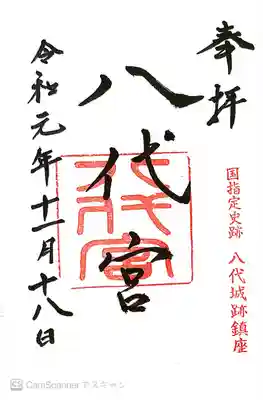 奉拝
国指定史跡 八代城跡鎮座
八代宮
八代宮
令和元年十一月十八日
CamScanner でスキャン